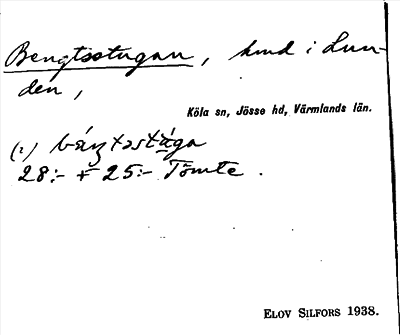 Bengtsstugan, hmd i Lun-
den,
Köla sn, Jösse hd, Värmlands län.
(2) báŋtəstága
28:- + 25:- Tomte.
ELOV SILFORS 1938.